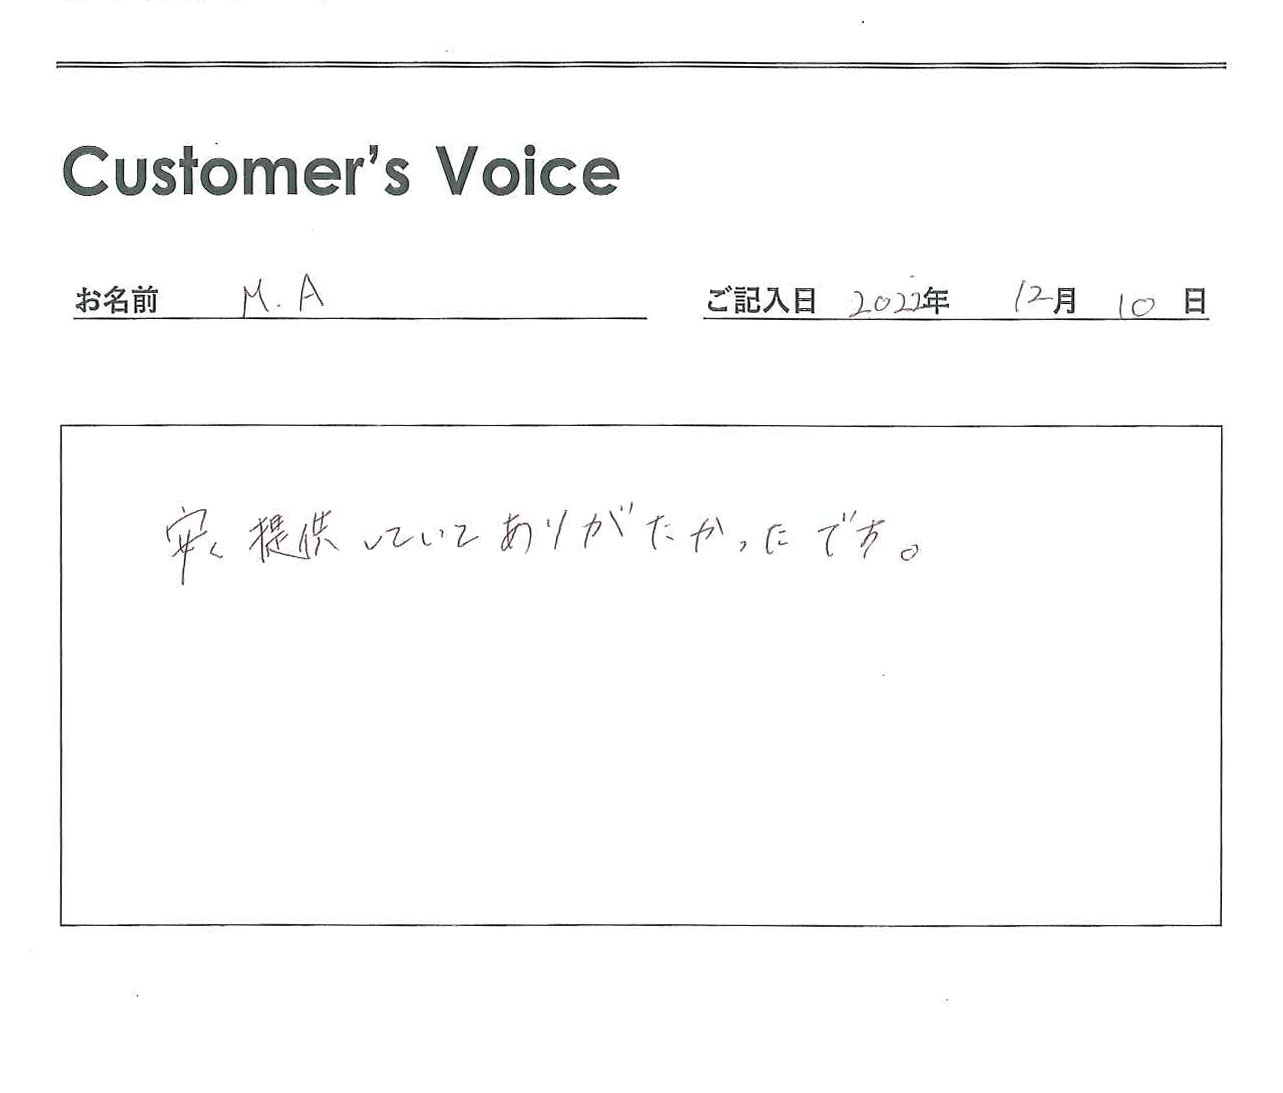 Customer's Voice
お名前 M.A ご記入日 2022年 12月 10日
安く提供していてありがたかったです。